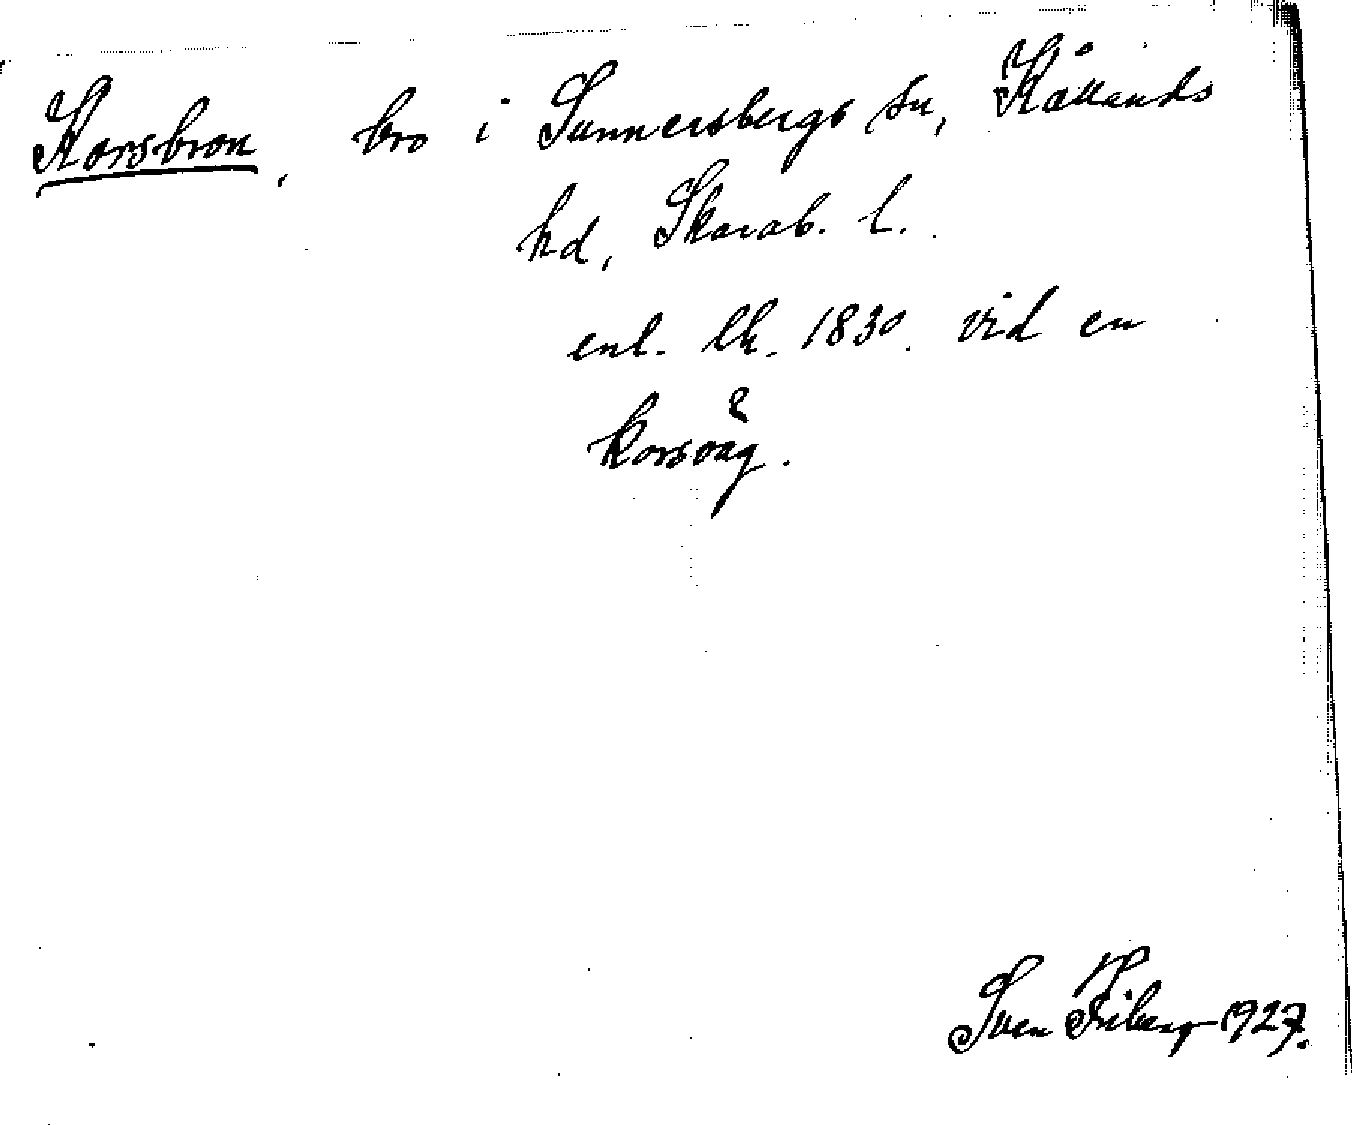 Korsbron, bro i Sunnersbergs sn, Kållands
hd, Skarab. l.
enl. lk. 1830. vid en
korsväg.
Sven Friberg 1927.